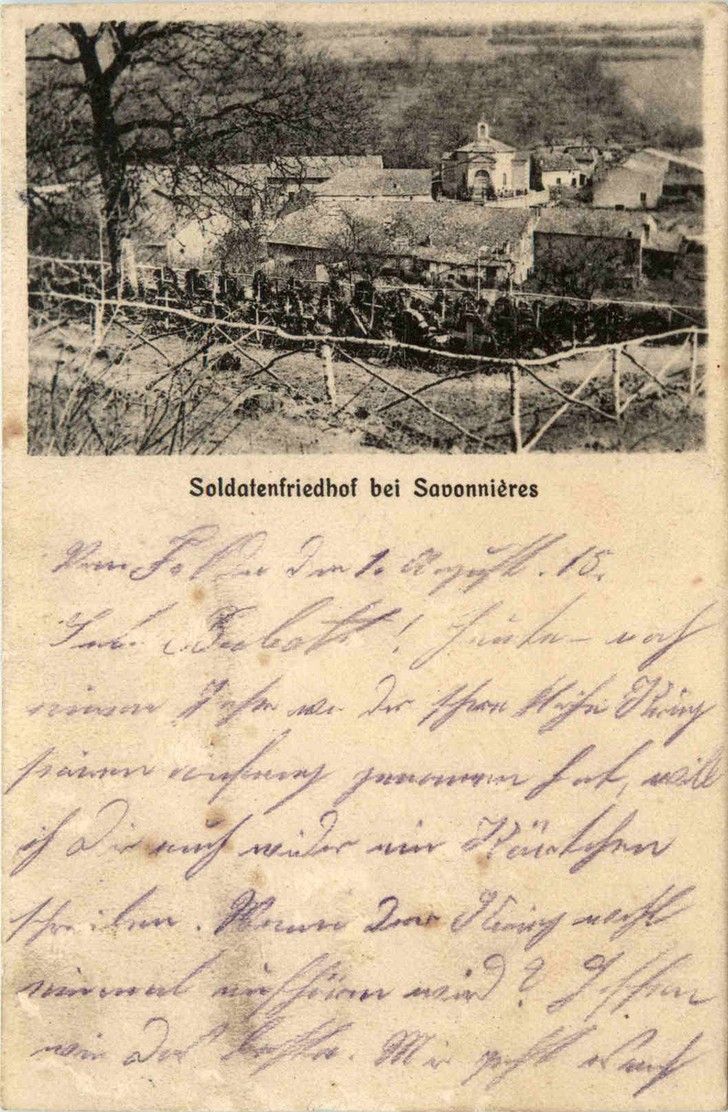 Soldatenfriedhof bei Savonnières
den 1. August. 15.
Heute noch
einem Jahr wo der Krieg
seinen anfang genomen hat, will
ich Dir auch wider ein Kärtchen
schreiben. Wann der Krieg wohl
einmal aufhören wird? Hoffen
wir das beste. Mir geht es auch